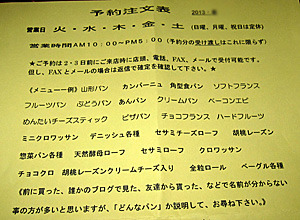 予約注文表 2013
営業日 火・水・木・金・土 (日曜、月曜、祝日は定休)
営業時間AM10:00~PM5:00 (予約分の受け渡しはこれに限らず)
★ご予約は2・3日前までにご来店時に店頭、電話、FAX、メールで受付可能です。
但し、FAXとメールの場合は返信で確認を確認して下さい。★
《メニュー一例》山形パン カンパーニュ 角型食パン ソフトフランス
フルーツパン ぶどうパン あんパン クリームパン ベーコンエピ
めんたいチーズスティック ピザパン チョコフランス ハードフルーツ
ミニクロワッサン デニッシュ各種 セサミチーズローフ 胡桃レーズン
惣菜パン各種 天然酵母ローフ セサミローフ クロワッサン
チョコクロ 胡桃レーズンクリームチーズ入り 全粒ロール ベーグル各種
《前に買った、誰かのブログで見た、友達から貰った、などで名前が分からない
事の方が多いと思いますが、「どんなパン」か説明して、お尋ね下さい。》